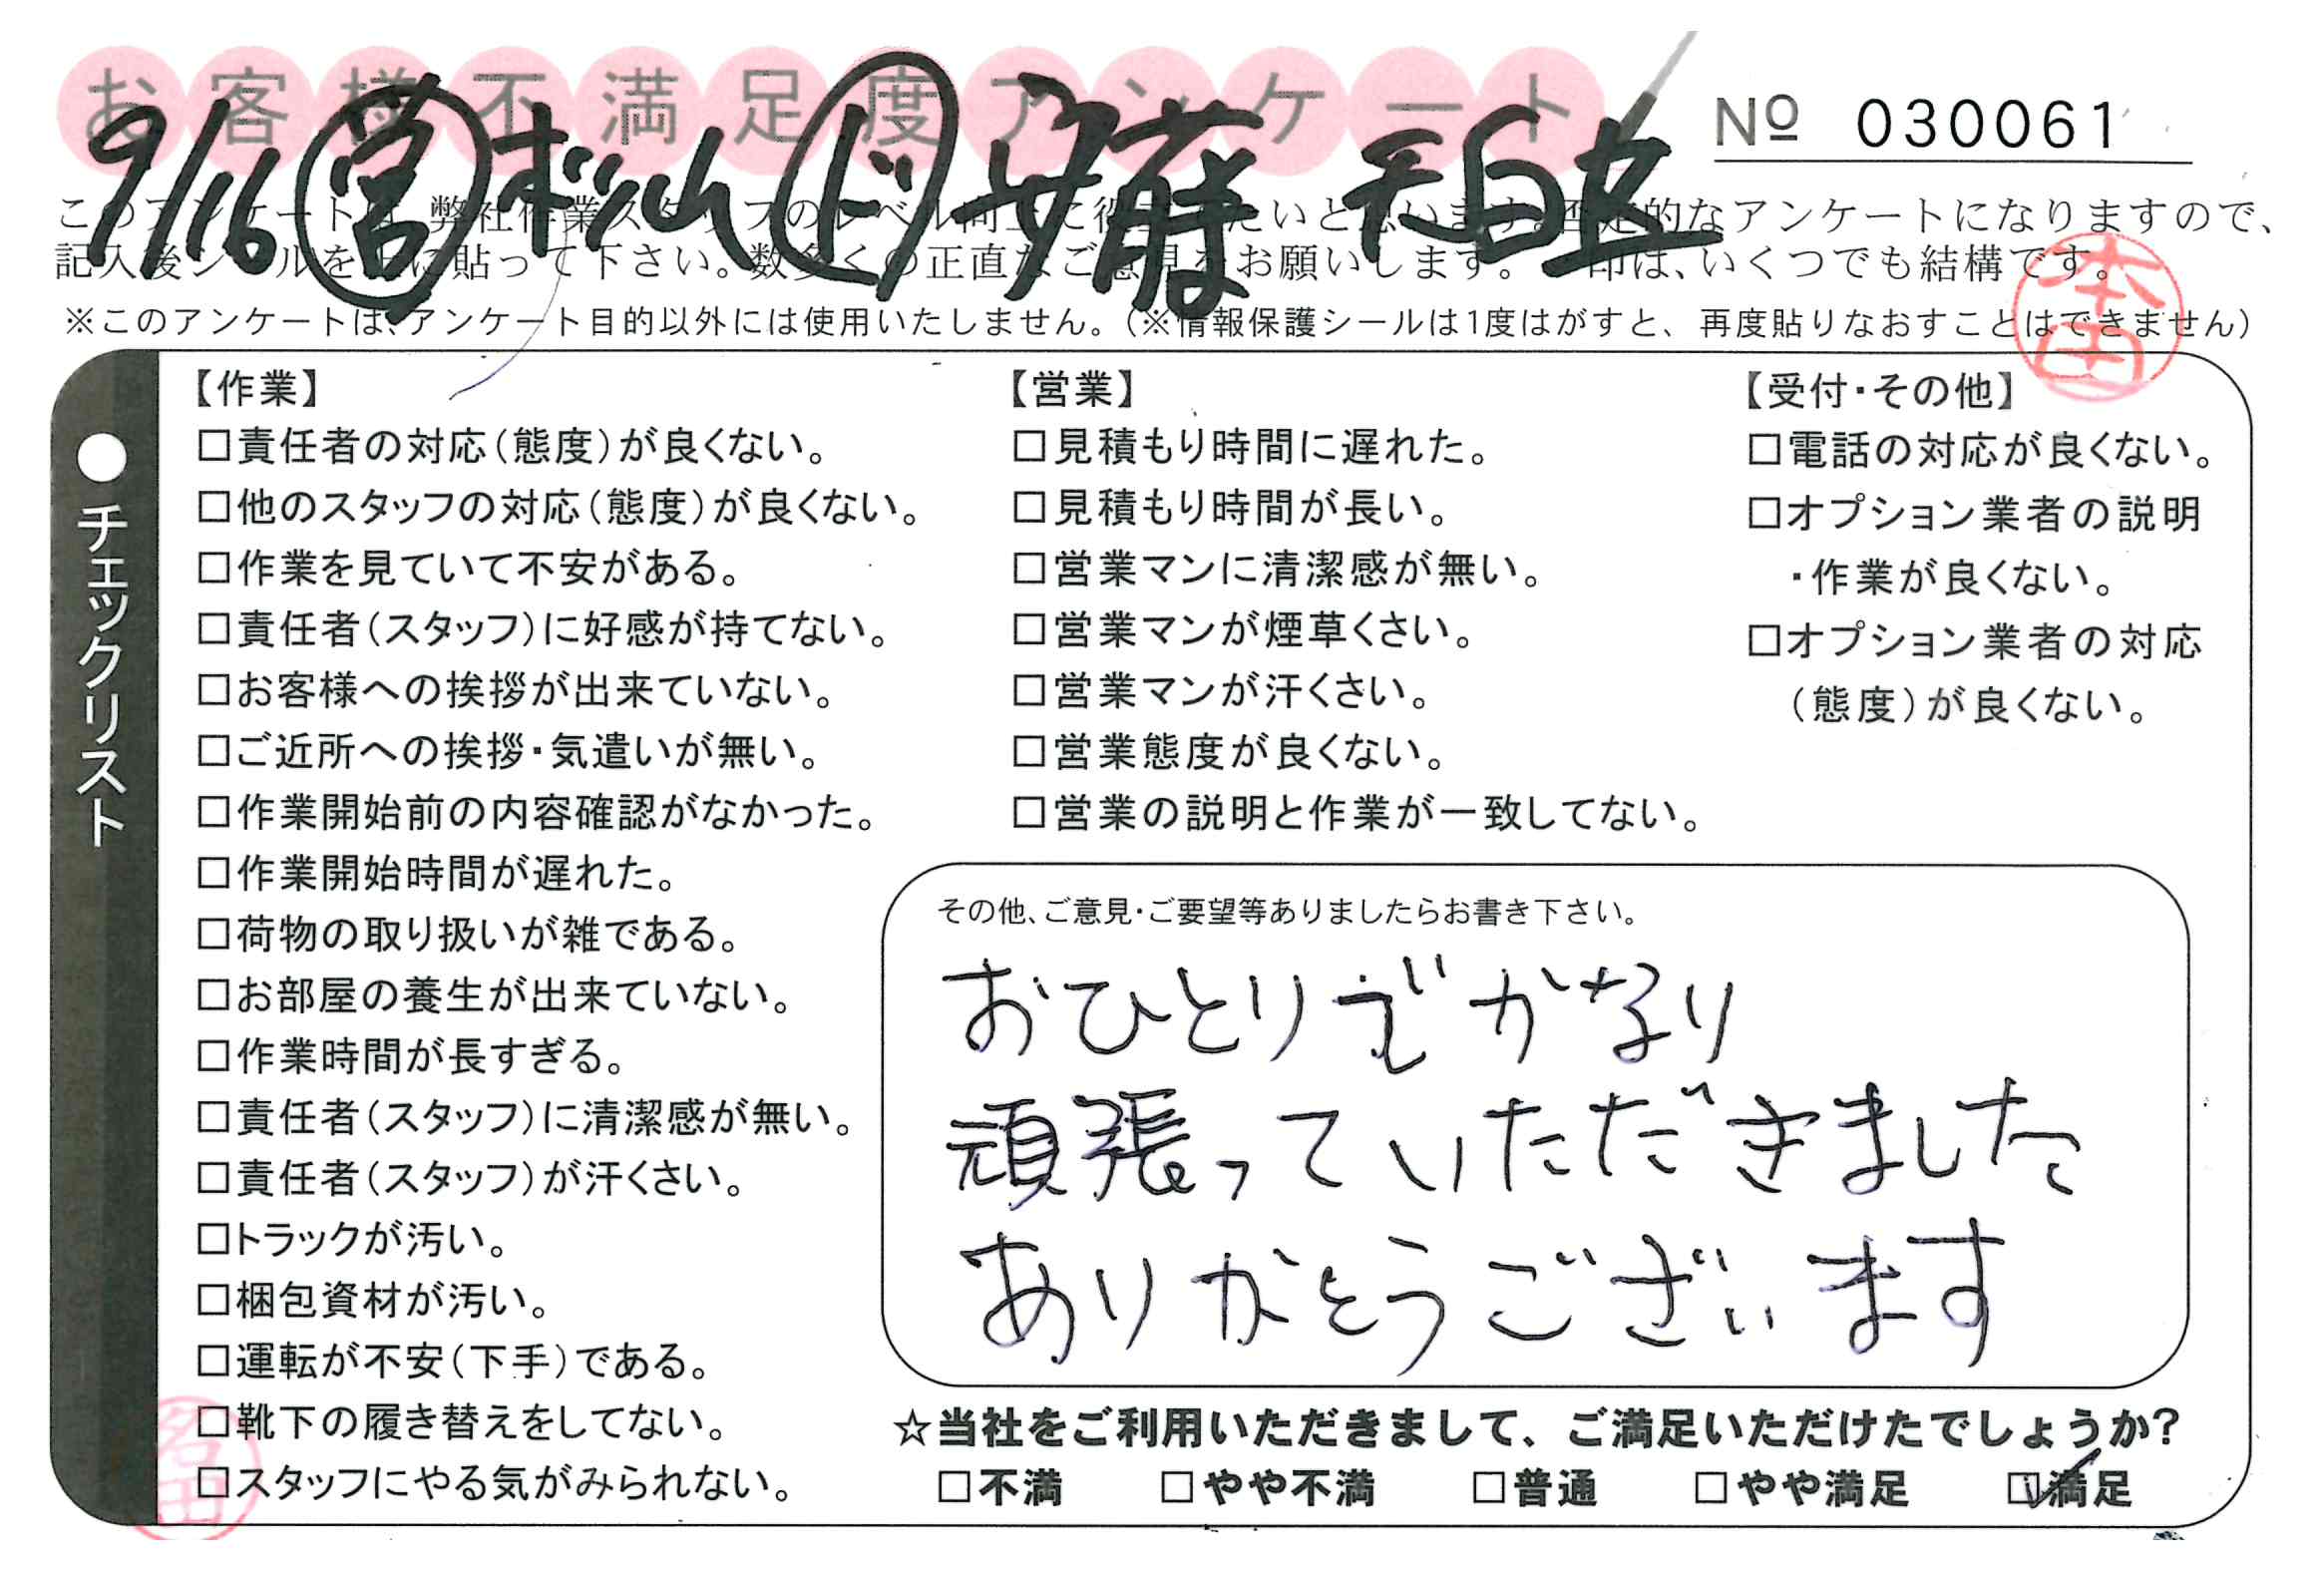 お客様不満足度アンケート
№ 030061
9/16 営 松山 ド 安藤 天白
このアンケートは、弊社作業スタッフのレベル向上に役立てたいと思います。否定的なアンケートになりますので、
記入後シールを上に貼って下さい。数多くの正直なご意見をお願いします。 印は、いくつでも結構です。
※このアンケートは、アンケート目的以外には使用いたしません。(※情報保護シールは1度はがすと、再度貼りなおすことはできません)
本田
●チェックリスト
【作業】
□責任者の対応(態度)が良くない。
□他のスタッフの対応(態度)が良くない。
□作業を見ていて不安がある。
□責任者(スタッフ)に好感が持てない。
□お客様への挨拶が出来ていない。
□ご近所への挨拶・気遣いが無い。
□作業開始前の内容確認がなかった。
□作業開始時間が遅れた。
□荷物の取り扱いが雑である。
□お部屋の養生が出来ていない。
□作業時間が長すぎる。
□責任者(スタッフ)に清潔感が無い。
□責任者(スタッフ)が汗くさい。
□トラックが汚い。
□梱包資材が汚い。
□運転が不安(下手)である。
□靴下の履き替えをしてない。
□スタッフにやる気がみられない。
【営業】
□見積もり時間に遅れた。
□見積もり時間が長い。
□営業マンに清潔感が無い。
□営業マンが煙草くさい。
□営業マンが汗くさい。
□営業態度が良くない。
□営業の説明と作業が一致してない。
【受付・その他】
□電話の対応が良くない。
□オプション業者の説明
・作業が良くない。
□オプション業者の対応
(態度)が良くない。
その他、ご意見・ご要望等ありましたらお書き下さい。
おひとりでかなり
頑張っていただきました
ありがとうございます
☆当社をご利用いただきまして、ご満足いただけたでしょうか?
□不満 □やや不満 □普通 □やや満足 ☑満足